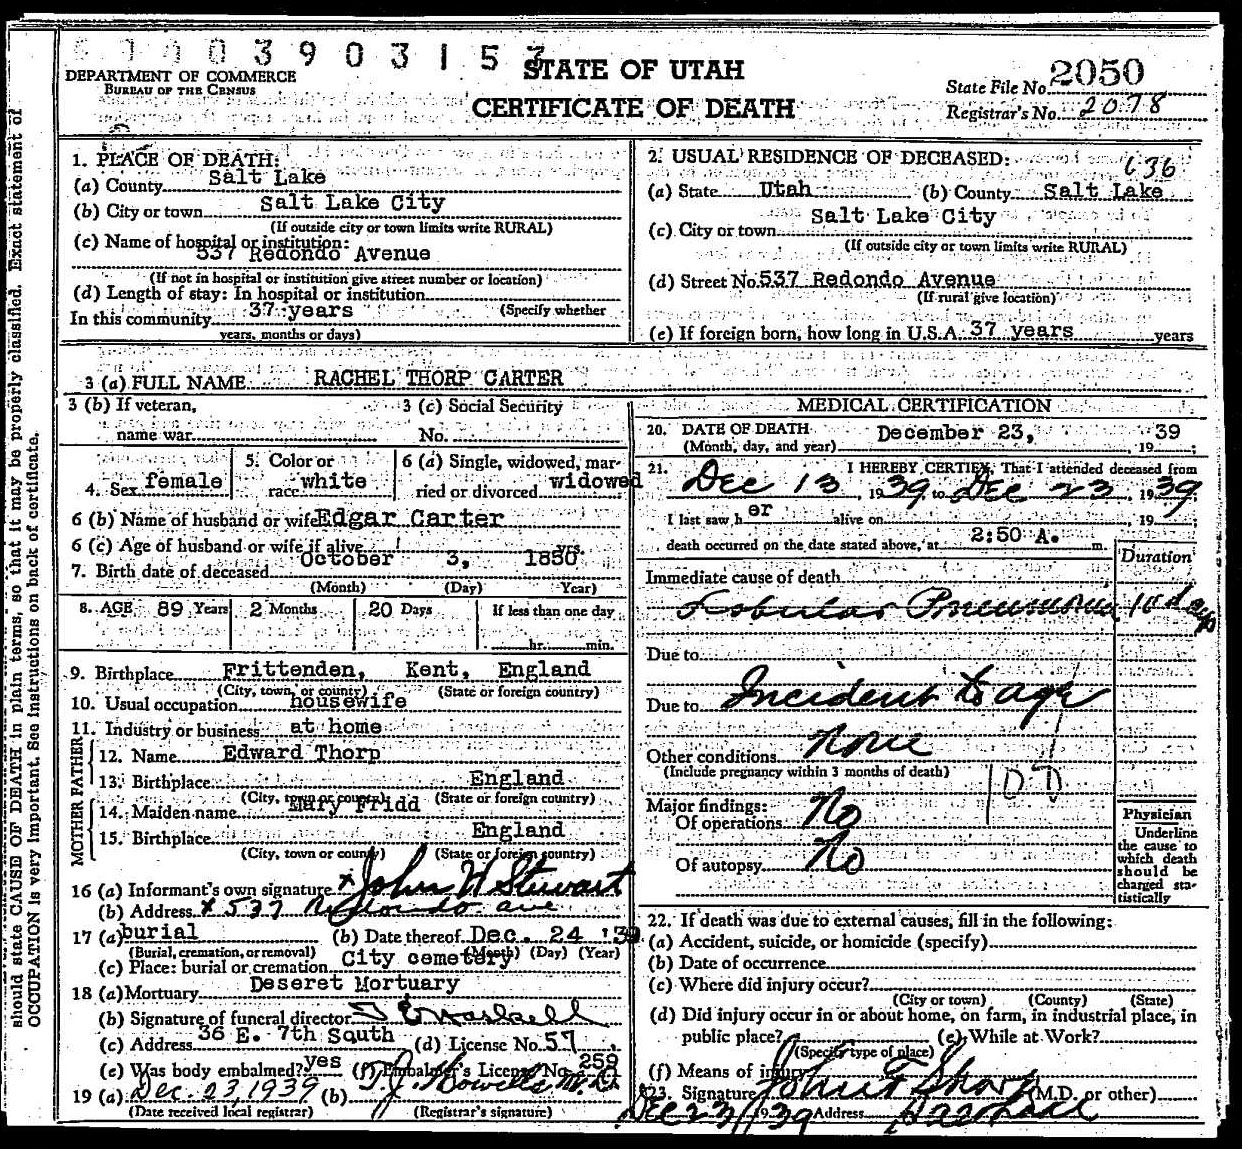 3 9 0 3 1 5 3
STATE OF UTAH
CERTIFICATE OF DEATH
DEPARTMENT OF COMMERCE
BUREAU OF THE CENSUS
State File No. 2050
Registrar's No. 2078
should state CAUSE OF DEATH in plain terms, so that it may be properly classified. Exact statement of
OCCUPATION is very important. See instructions on back of certificate.
1. PLACE OF DEATH:
(a) County Salt Lake
(b) City or town Salt Lake City
(If outside city or town limits write RURAL)
(c) Name of hospital or institution:
537 Redondo Avenue
(If not in hospital or institution give street number or location)
(d) Length of stay: In hospital or institution
In this community 37 years (Specify whether
years, months or days)
2. USUAL RESIDENCE OF DECEASED: 636
(a) State Utah (b) County Salt Lake
(c) City or town Salt Lake City
(If outside city or town limits write RURAL)
(d) Street No. 537 Redondo Avenue
(If rural give location)
(e) If foreign born, how long in U.S.A. 37 years years
3 (a) FULL NAME RACHEL THORP CARTER
3 (b) If veteran, 3 (c) Social Security
name war No.
4. Sex female 5. Color or race white 6 (a) Single, widowed, married or divorced widowed
6 (b) Name of husband or wife Edgar Carter
6 (c) Age of husband or wife if alive yrs.
7. Birth date of deceased October 3, 1850
(Month) (Day) Year)
8. AGE 89 Years 2 Months 20 Days If less than one day
hr. min.
9. Birthplace Frittenden, Kent, England
(City, town, or county) (State or foreign country)
10. Usual occupation housewife
11. Industry or business at home
FATHER
12. Name Edward Thorp
13. Birthplace England
(City, town or county) (State or foreign country)
MOTHER
14. Maiden name Mary Fridd
15. Birthplace England
(City, town or county) (State or foreign country)
16 (a) Informant's own signature x John W Stewart
(b) Address x 537 Redondo ave
17 (a) burial (b) Date thereof Dec. 24 '39
(Burial, cremation, or removal) (Month) (Day) (Year)
(c) Place: burial or cremation City cemetery
18 (a) Mortuary Deseret Mortuary
(b) Signature of funeral director
(c) Address 36 E. 7th South (d) License No. 57
(e) Was body embalmed? yes (f) Embalmer's License No. 259
19 (a) Dec. 23, 1939 (b) T.J. Howells M.D.
(Date received local registrar) (Registrar's signature)
MEDICAL CERTIFICATION
20. DATE OF DEATH December 23, 1939;
(Month, day, and year)
21. I HEREBY CERTIFY, That I attended deceased from
Dec 13, 1939 to Dec 23, 1939;
I last saw her alive on , 19 ;
death occurred on the date stated above, at 2:50 A. m.
Duration
Immediate cause of death
Lobular Pneumonia 10 days
Due to
Due to Incident to age
Other conditions None
(Include pregnancy within 3 months of death)
107
Major findings:
Of operations No
Of autopsy No
Physician
Underline
the cause to
which death
should be
charged sta-
tistically
22. If death was due to external causes, fill in the following:
(a) Accident, suicide, or homicide (specify)
(b) Date of occurrence
(c) Where did injury occur?
(City or town) (County) (State)
(d) Did injury occur in or about home, on farm, in industrial place, in
public place? (e) While at Work?
(Specify type of place)
(f) Means of injury
23. Signature John F Sharp (M.D. or other)
Dec 23 1939 Address